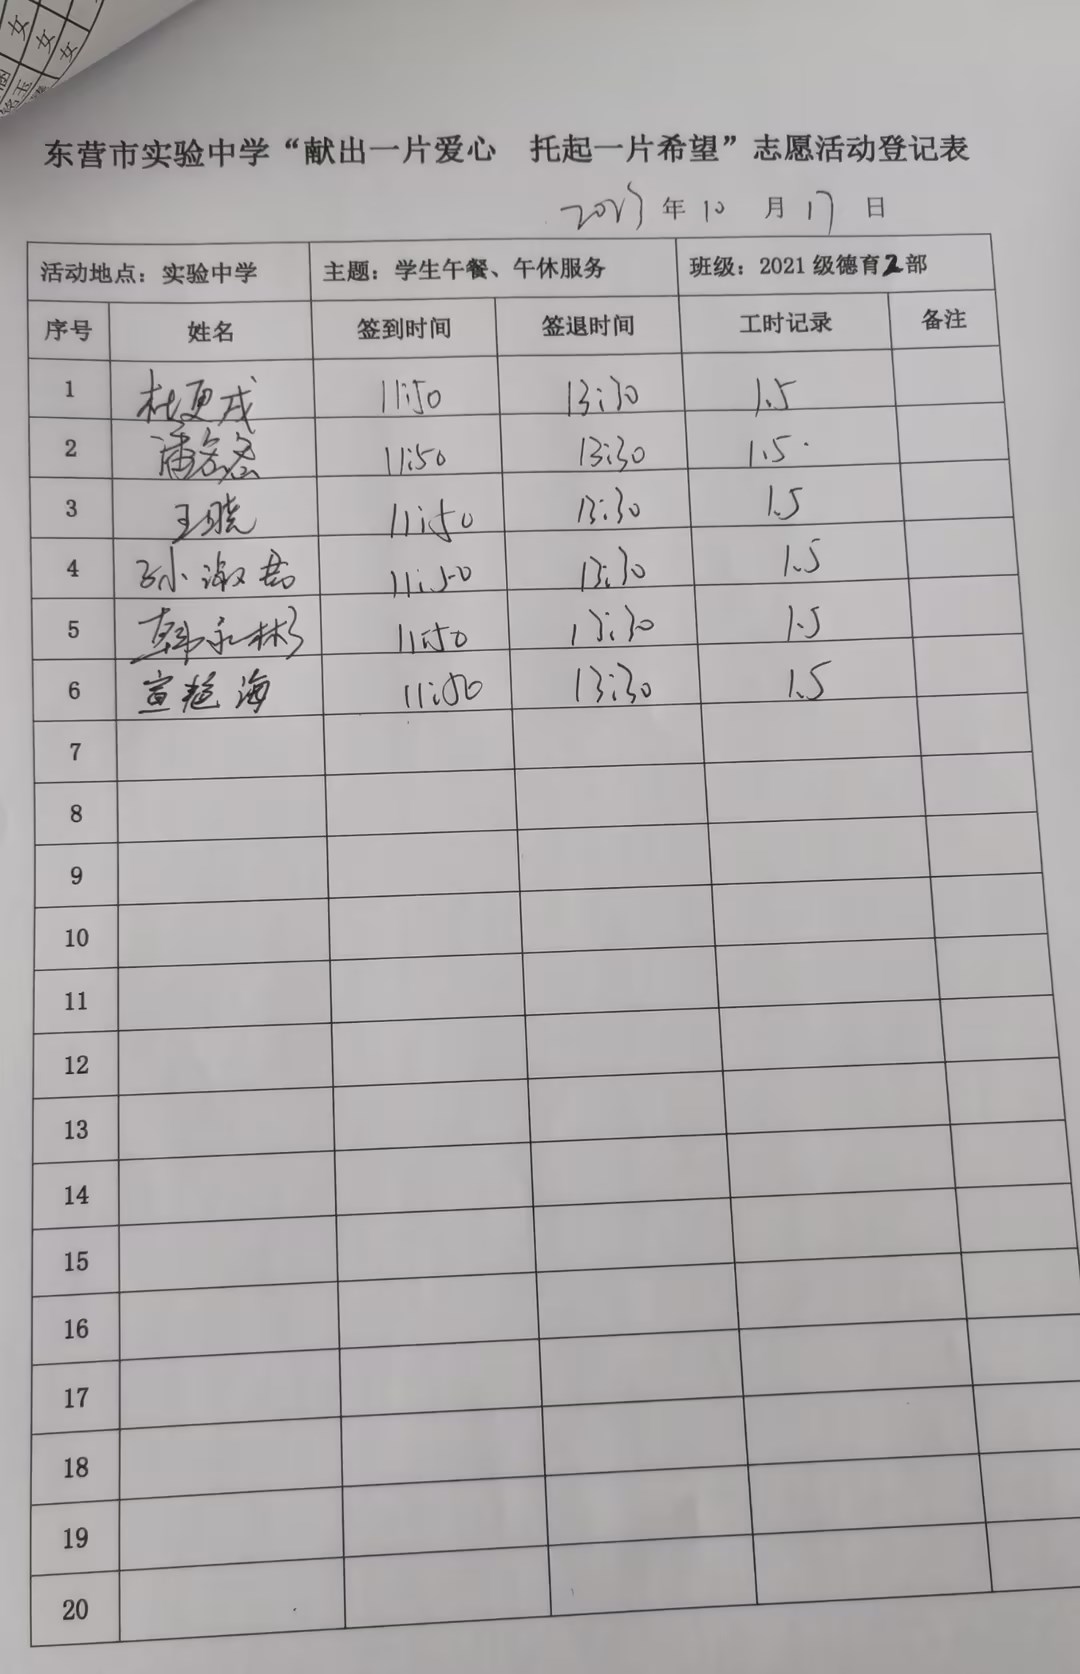 女
女
女
东营市实验中学“献出一片爱心 托起一片希望”志愿活动登记表
2023年10月17日
活动地点：实验中学 主题：学生午餐、午休服务 班级：2021级德育2部
序号 姓名 签到时间 签退时间 工时记录 备注
1 11:50 13:30 1.5
2 11:50 13:30 1.5
3 王晓 11:50 13:30 1.5
4 孙淑君 11:50 13:30 1.5
5 韩永彬 11:50 13:30 1.5
6 宣艳海 11:50 13:30 1.5
7
8
9
10
11
12
13
14
15
16
17
18
19
20